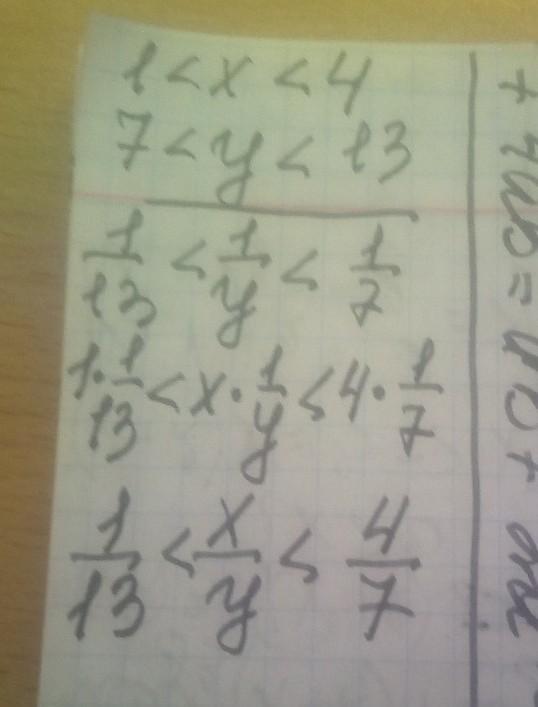 1 < x < 4
7 < y < 13
1/13 < 1/y < 1/7
1 · 1/13 < x · 1/y < 4 · 1/7
1/13 < x/y < 4/7